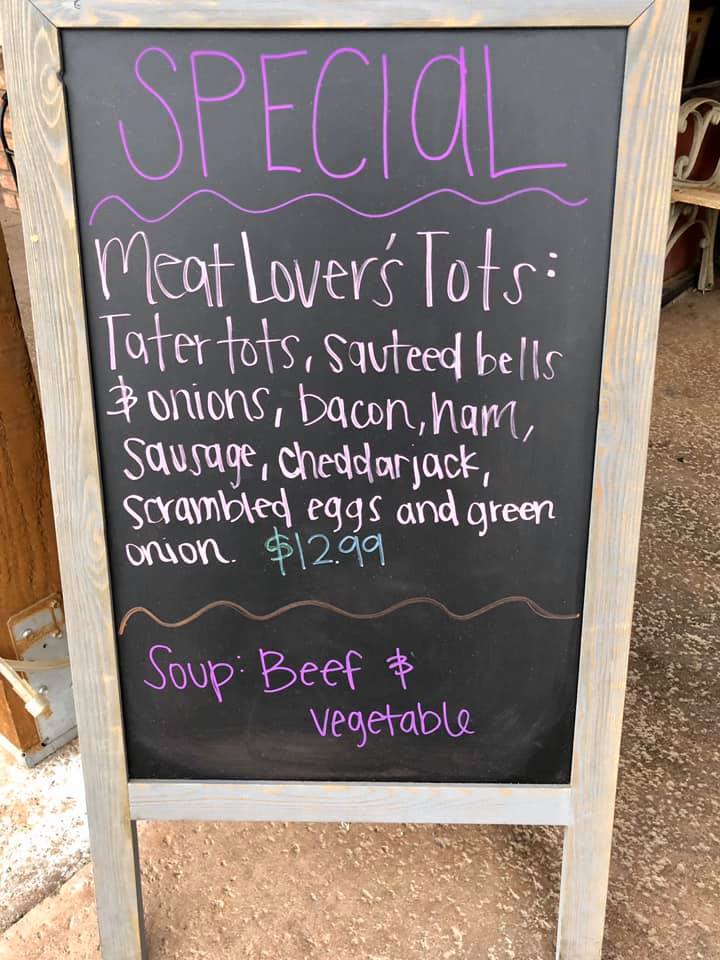 SPECIAL
Meat Lover's Tots:
Tater tots, sauteed bells
& onions, bacon, ham,
sausage, cheddarjack,
scrambled eggs and green
onion. $12.99
Soup: Beef &
vegetable